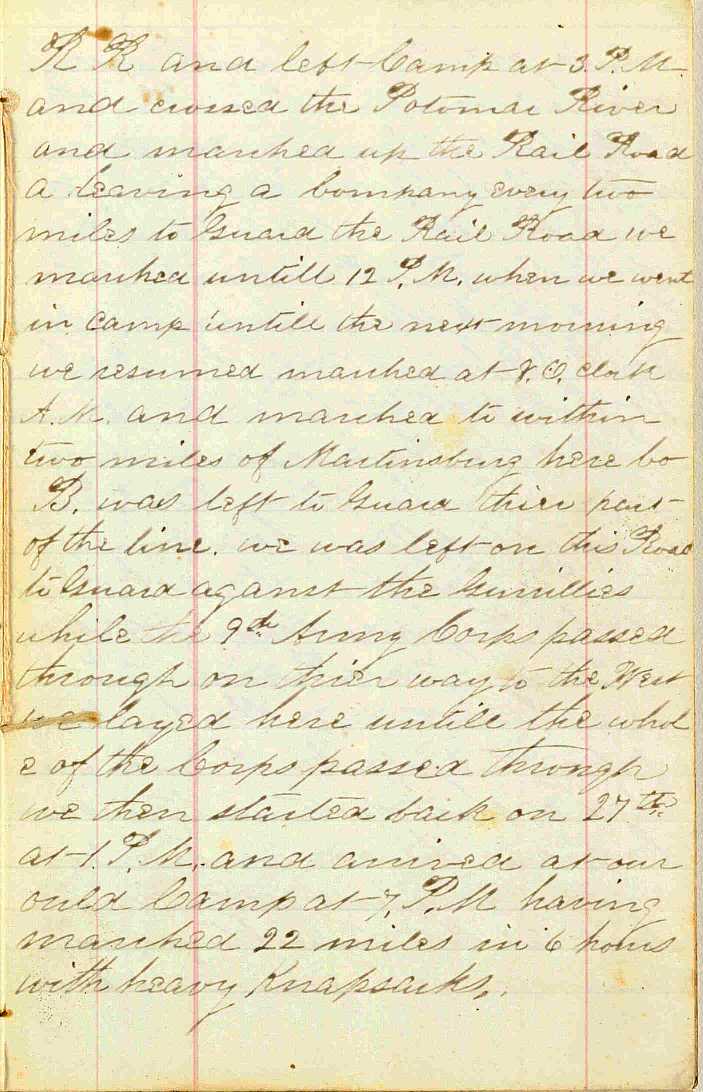 R R and left Camp at 3 P.M
and crossed the Potomac River
and marched up the Rail Road
a leaving a Company every two
miles to Guard the Rail Road we
marched untill 12 P.M. when we went
in camp untill the next morning
we resumed marched at 8. O. clock
A.M. and marched to within
two miles of Martinsburg here Co
B. was left to Guard thier part
of the line. we was left on this Road
to Guard aganst the Gurillies
while the 9th Army Corps passed
through on thier way to the West
we layed here untill the whol
e of the Corps passed through
we then started back on 27th.
at 1. P.M. and arrived at our
ould Camp at 7. P.M having
marched 22 miles in 6 hours
with heavy Knapsacks.